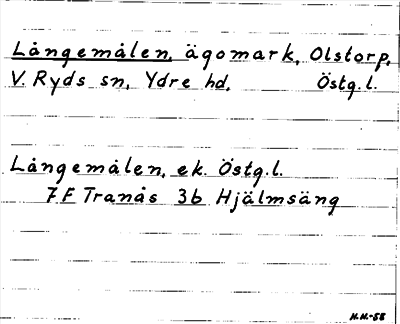 Långemålen, ägomark, Olstorp,
V. Ryds sn, Ydre hd, Östg.l.
Långemålen, ek. Östg.l.
7F Tranås 3b Hjälmsäng
N.N.-58